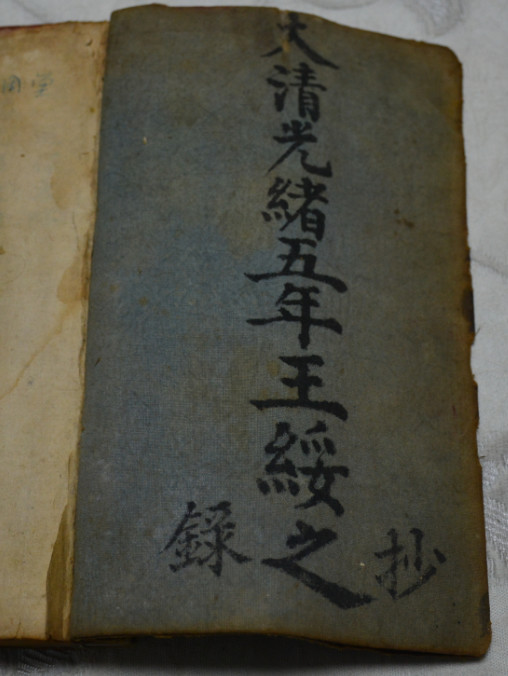 大清光緒五年王綏之
抄錄